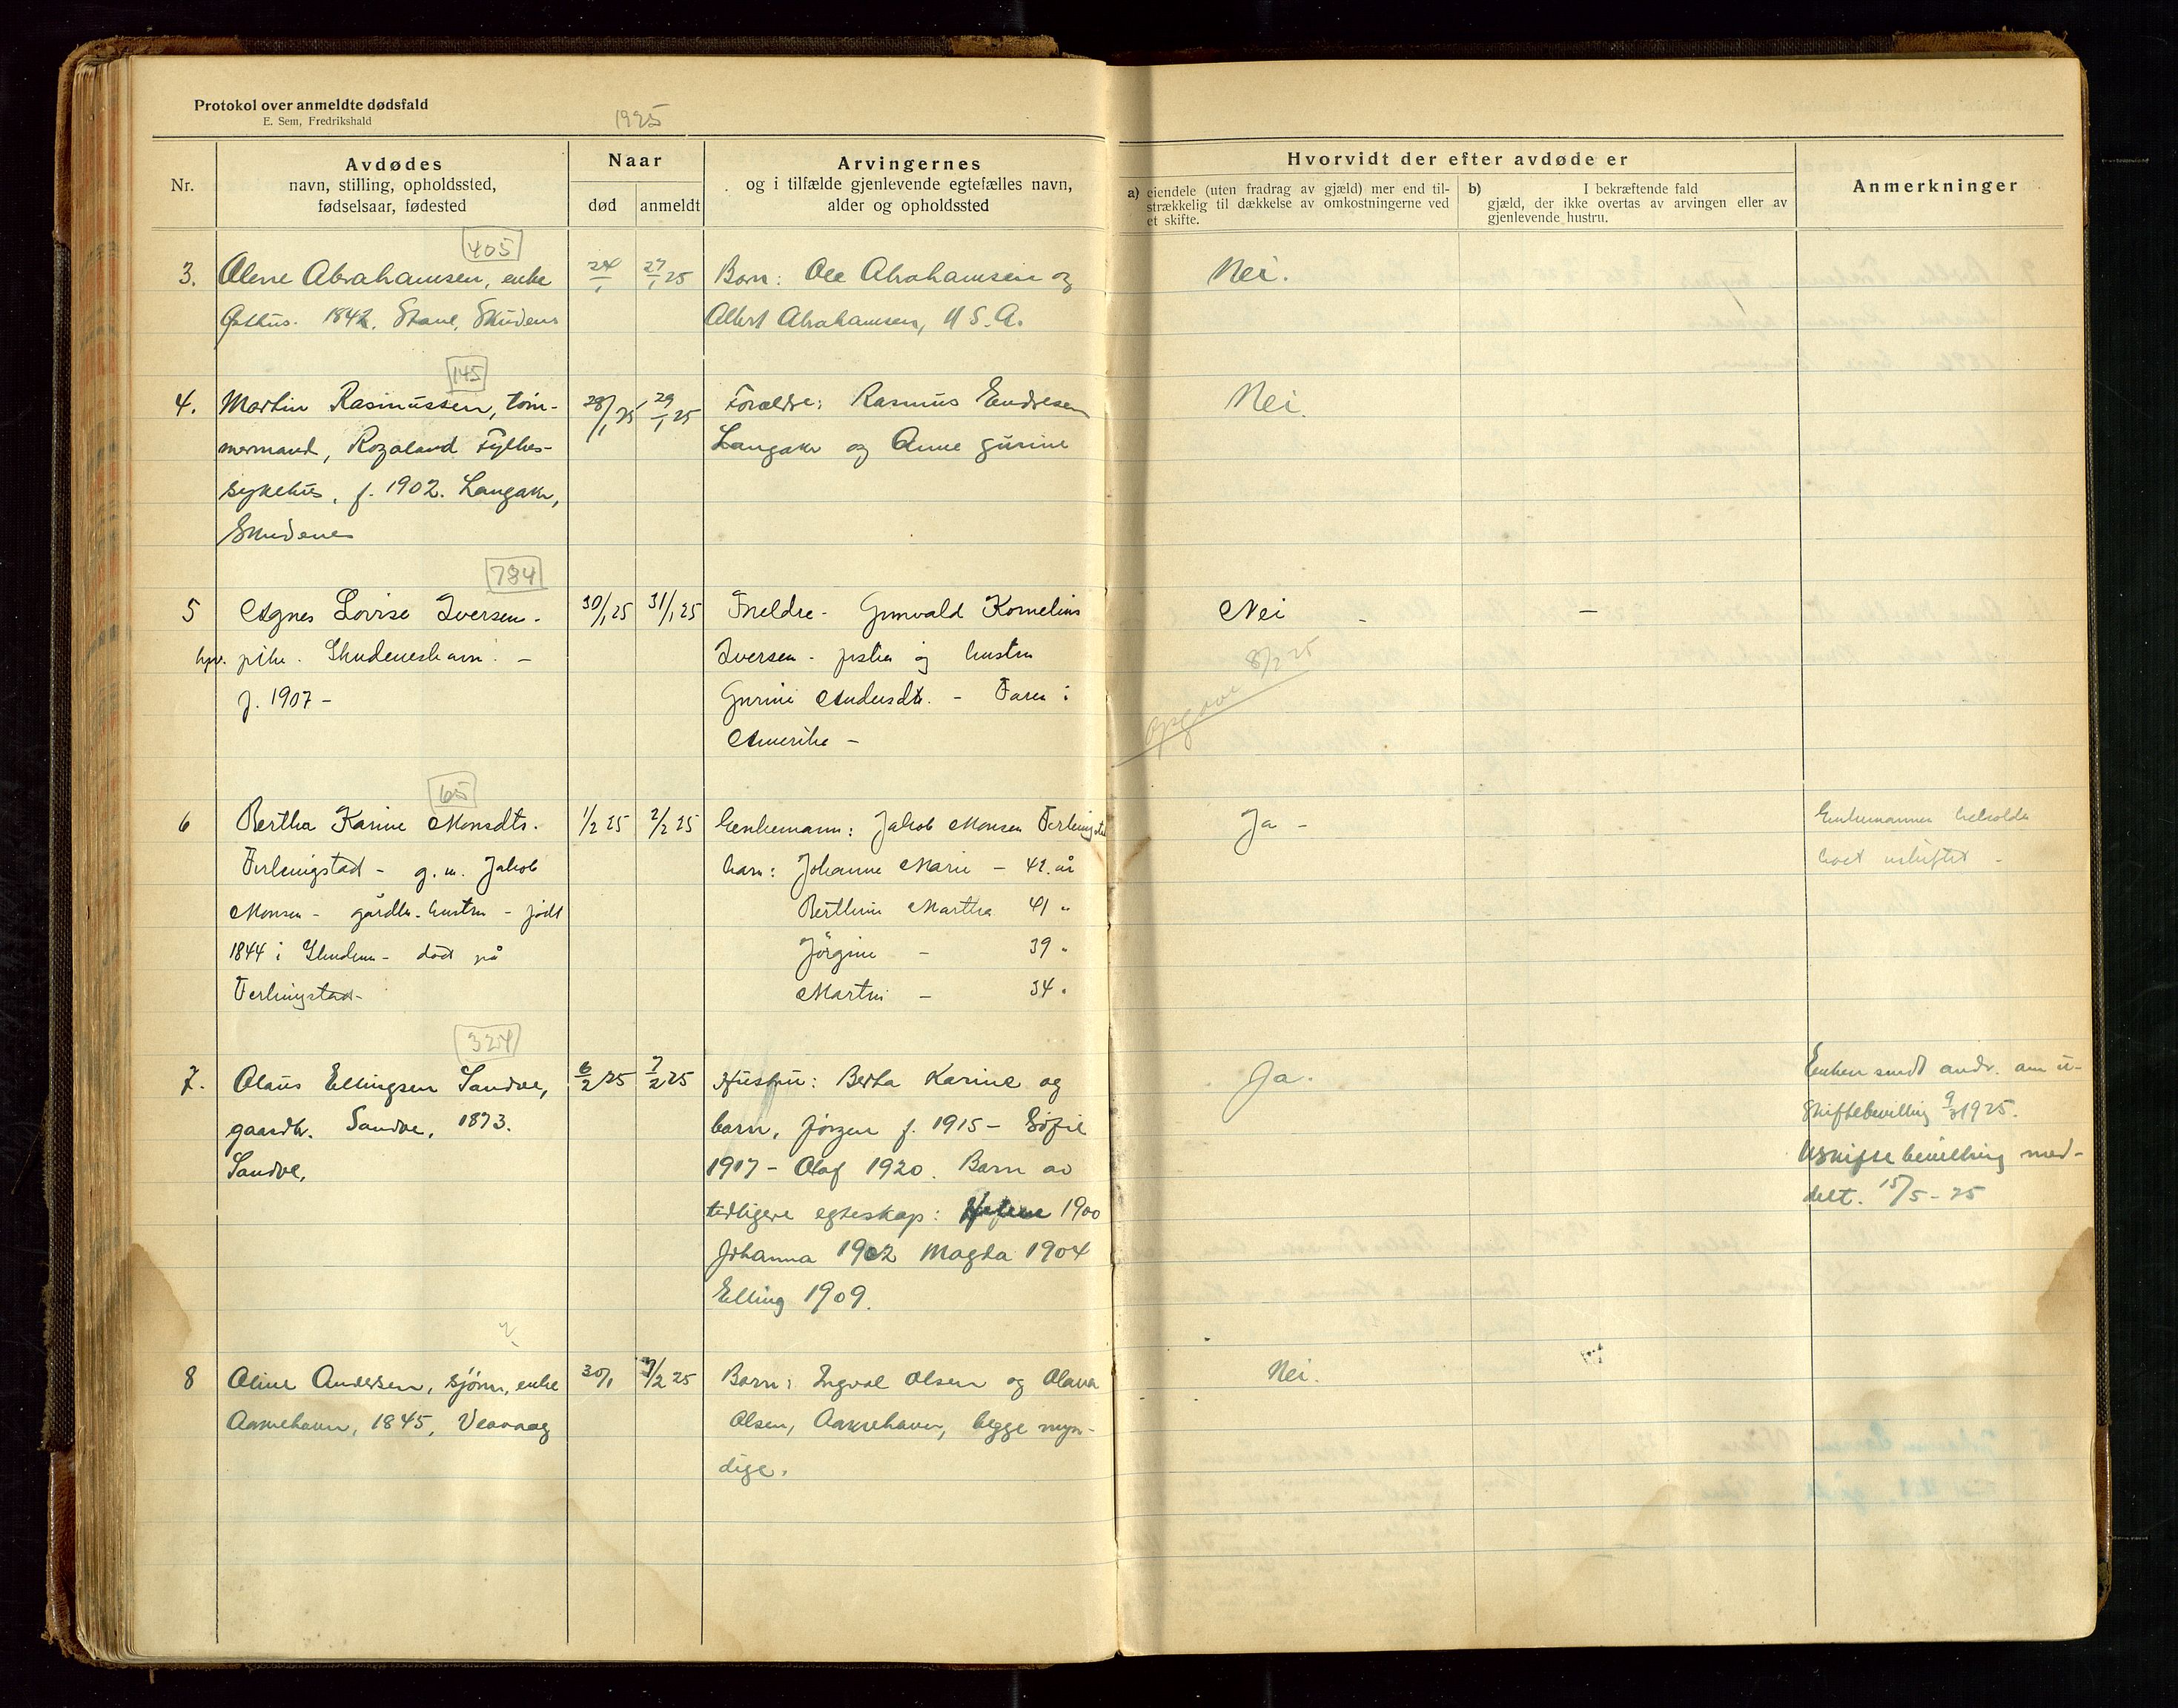 Protokol over anmeldte dødsfald
E. Sem, Fredrikshald
1925
Nr.
Avdødes
navn, stilling, opholdssted,
fødselsaar, fødested
Naar
død
anmeldt
Arvingernes
og i tilfælde gjenlevende egtefælles navn,
alder og opholdssted
Hvorvidt der efter avdøde er
a) eiendele (uten fradrag av gjæld) mer end til-
strækkelig til dækkelse av omkostningerne ved
et skifte.
b) I bekræftende fald
gjæld, der ikke overtas av arvingen eller av
gjenlevende hustru.
Anmerkninger
405
3. Olene Abrahamsen, enke
Østhus. 1842, Stave, Skudenes
24/1
27/1 25
Barn: Ole Abrahamsen og
Albert Abrahamsen, U S. A.
Nei.
145
4. Martin Rasmussen, tøm-
mermand, Rogaland Fylkes-
sykehus, f. 1902. Langaker,
Skudenes
28/1 25
29/1 25
Forældre: Rasmus Endresen
Langaker og Anne Gurine
Nei.
784
5 Agnes Lovise Iversen.
pike. Skudeneshavn. -
f. 1907 -
30/1 25
31/1 25
Foreldre - Grunvald Kornelius
Iversen - fisker og hustru
Gurine Andersdtr. - Faren i
Amerika -
Nei
-
Opgave 8/2 25
65
6 Bertha Karine Monsdtr.
Ferkingstad - g. m. Jakob
Monsen - gårdbr. hustru - født
1844 i Skudenes - död på
Ferkingstad -
1/2 25
2/2 25
Enkemann: Jakob Monsen Ferkingstad
barn: Johanne Marie - 42 år
Berthine Martha 41 "
Jörgine - 39 "
Martin - 34 "
Ja -
Enkemannen beholder
boet uskiftet -
324
7. Olaus Ellingsen Sandve,
gaardbr. Sandve, 1873.
Sandve,
6/2 25
7/2 25
Hustru: Berta Karine og
barn, Jørgen f. 1915 - Sofie
1917 - Olaf 1920. Barn av
tidligere egteskap: Helene 1900
Johanna 1902 Magda 1904
Elling 1909.
Ja.
Enken sendt andr. om u-
skiftebevilling 9/3 1925.
Uskiftebevilling med-
delt. 15/5 - 25
8 Oline Andersen, sjøm. enke
Aakrehavn, 1845, Veavaag
30/1
7/2 25
Barn: Ingval Olsen og Olava
Olsen, Aakrehavn, begge myn-
dige.
Nei.